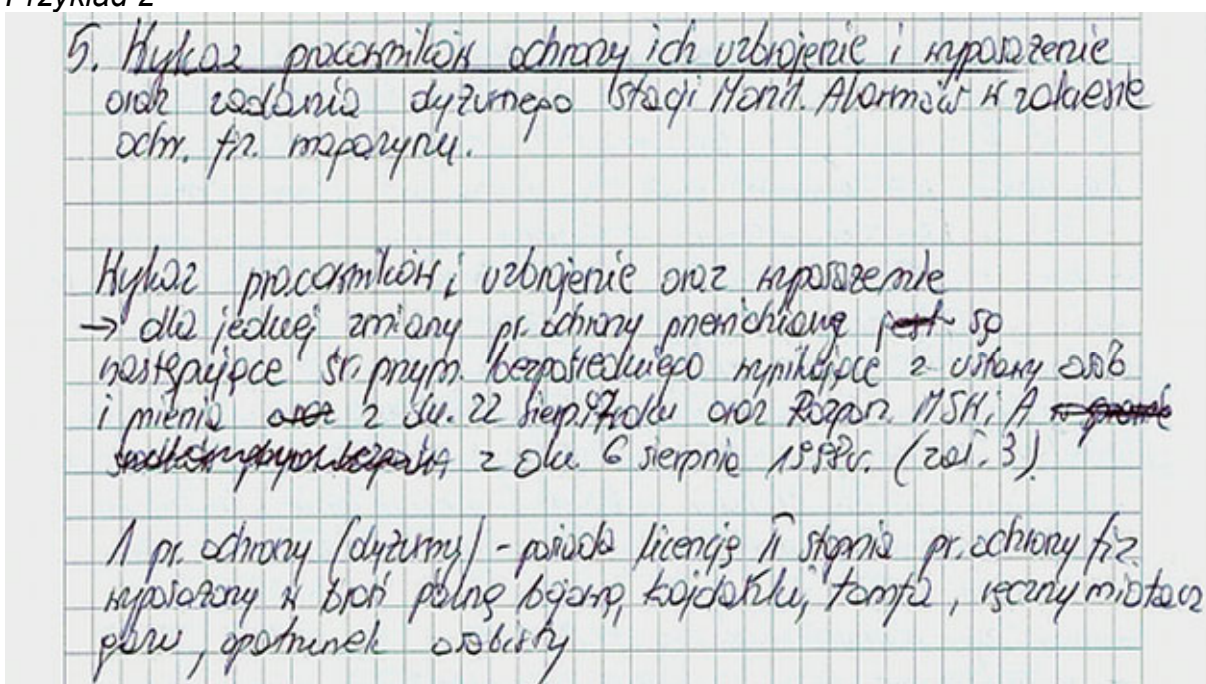 Przykład 2
5. Wykaz pracowników ochrony ich uzbrojenie i wyposażenie
oraz zadania dyżurnego Stacji Monit. Alarmów w zakresie
ochr. fiz. magazynu.
Wykaz pracowników i uzbrojenie oraz wyposażenie
→ dla jednej zmiany pr. ochrony przewidziane jest są
następujące śr. przym. bezpośredniego wynikające z ustawy osób
i mienia oraz z dn. 22 sierp. 97 roku oraz Rozpor. MSW i A w
z dn. 6 sierpnia 1998r. (zał. 3).
1 pr. ochrony (dyżurny) - posiada licencję II stopnia pr. ochrony fiz.
wyposażony w broń palną bojową, kajdanki, tomfa, ręczny miotacz
gazu, opatrunek osobisty